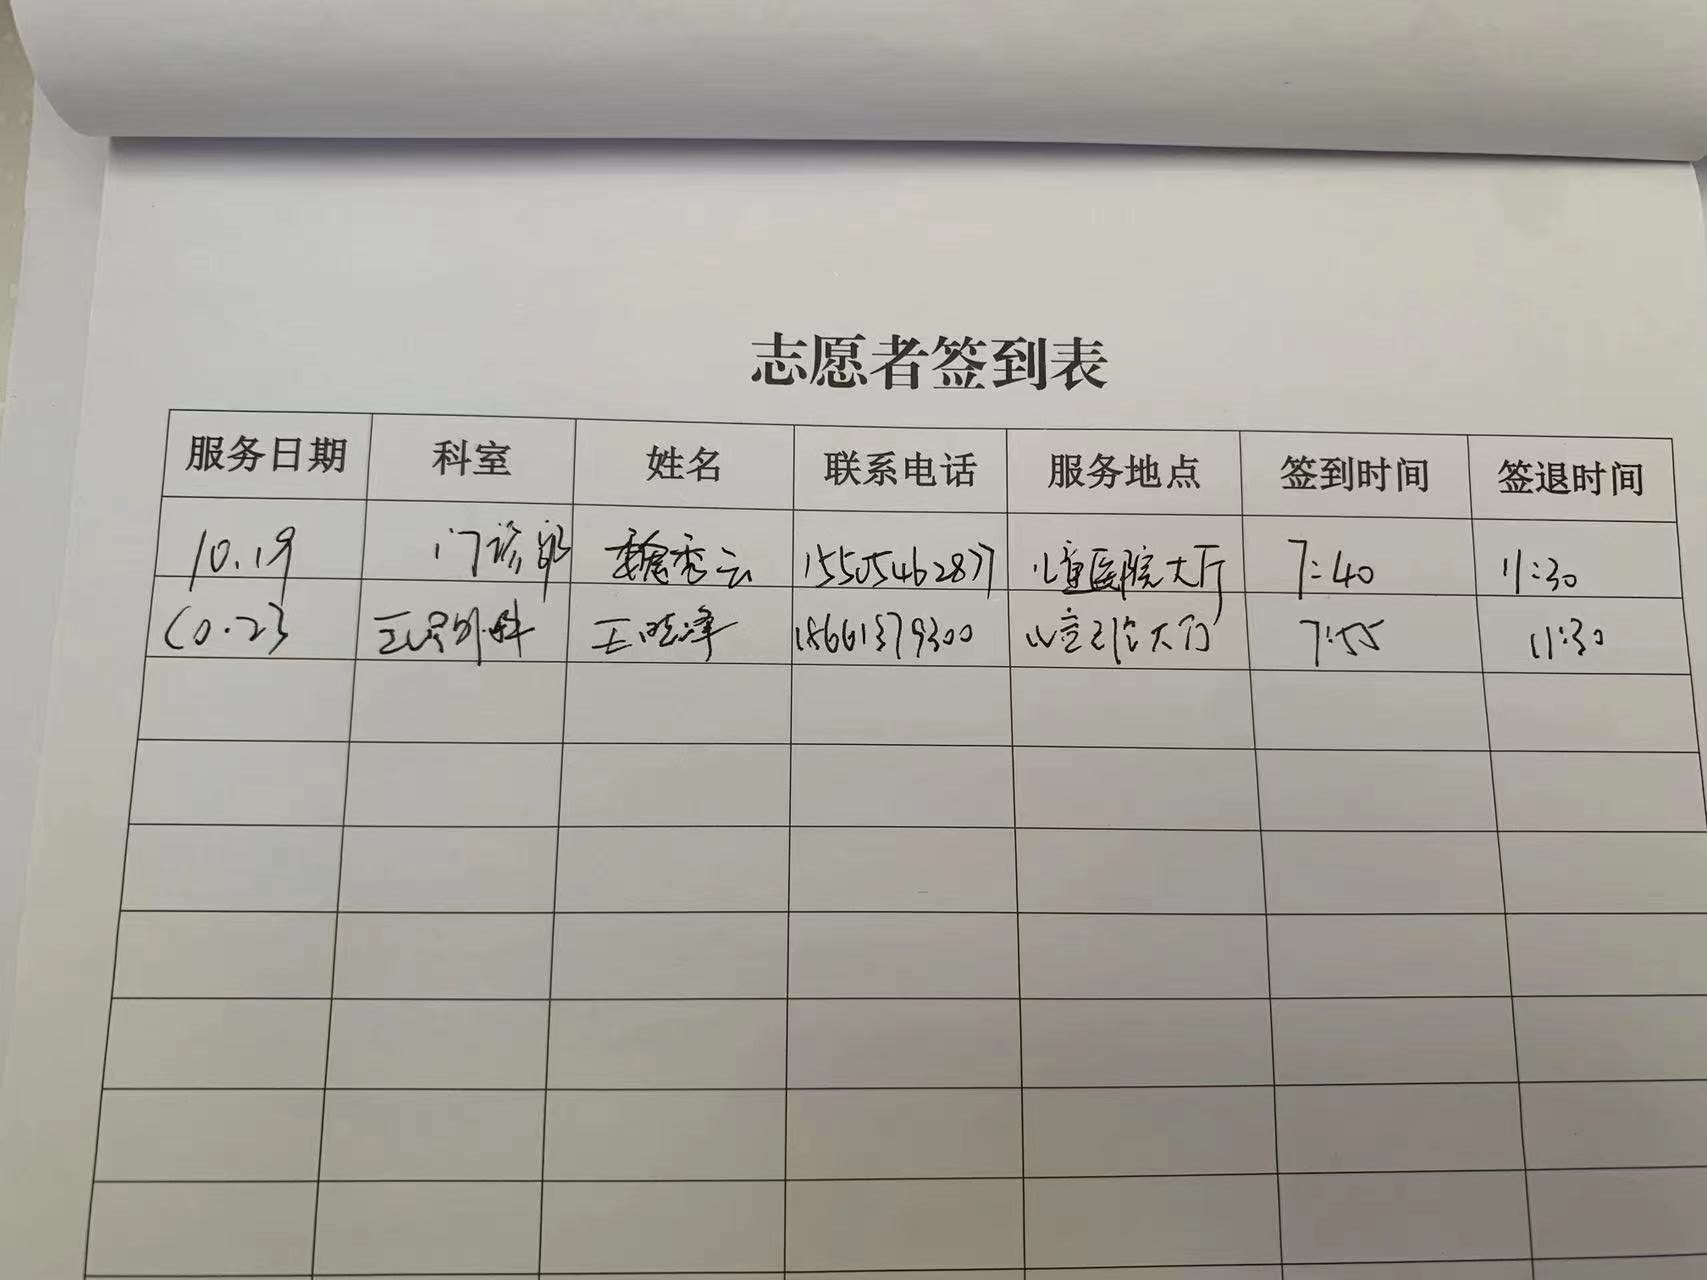 志愿者签到表
服务日期 科室 姓名 联系电话 服务地点 签到时间 签退时间
10.19 门诊部 魏秀云 15505462877 儿童医院大厅 7:40 11:30
10.23 外科 王晓泽 18661379300 大厅 7:55 11:30